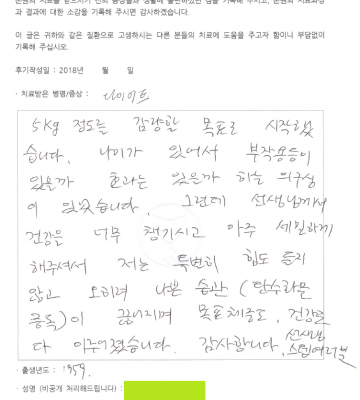 본원의 치료를 받으시기 전의 증상들과 생활에 불편하셨던 점을 기록해 주시고, 본원의 치료과정
과 결과에 대한 소감을 기록해 주시면 감사하겠습니다.
이 글은 귀하와 같은 질환으로 고생하시는 다른 분들의 치료에 도움을 주고자 함이니 부담없이
기록해 주십시오.
후기작성일 : 2018년 월 일
· 치료받은 병명/증상 : 다이어트
5kg 정도를 감량할 목표로 시작했
습니다. 나이가 있어서 부작용등이
있을까 효과는 있을까 하는 의구심
이 있었습니다. 그런데 선생님께서
건강을 너무 챙기시고 아주 세밀하게
해주셔서 저는 특별히 힘도 들지
않고 오히려 나쁜 습관 (탄수화물
중독)이 끊어지며 목표체중도, 건강을
다 이루어졌습니다. 감사합니다. 선생님
스텝여러분
· 출생년도 : 1959.
· 성명 (비공개 처리해드립니다) :